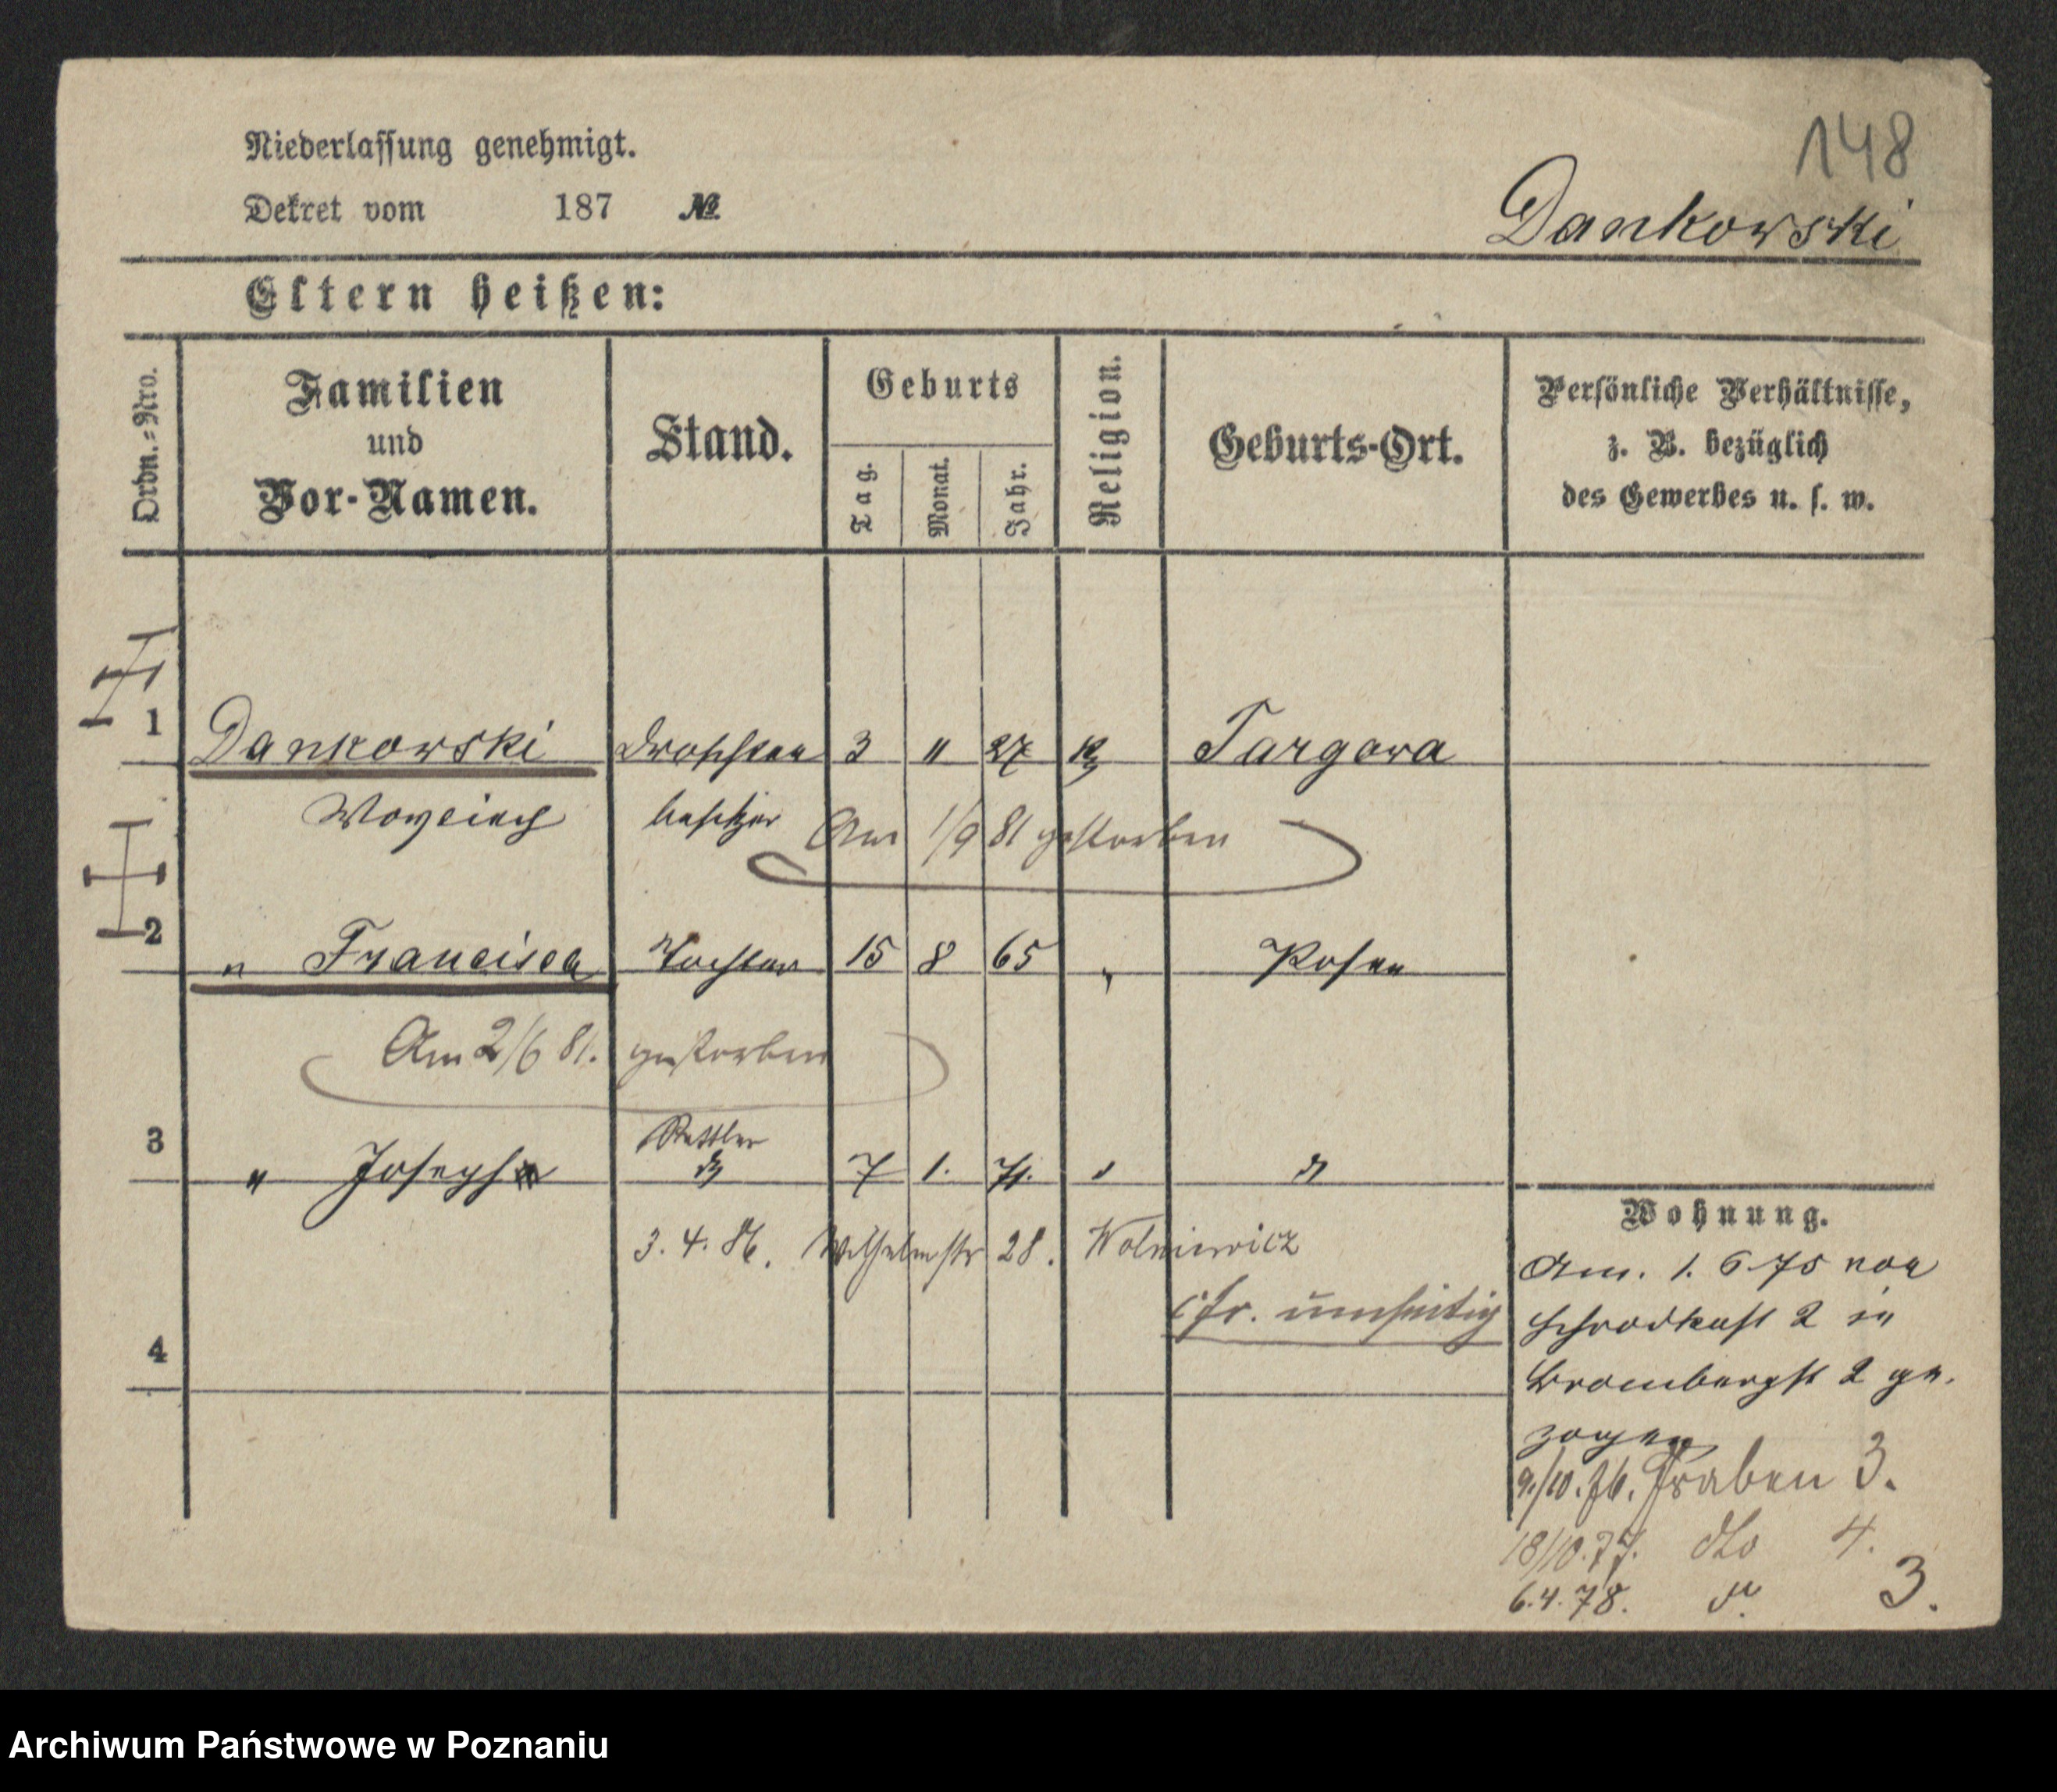 148
Niederlassung genehmigt.
Dekret vom 187 №
Dankowski
Eltern heißen:
Ordn.-Nro.
Familien und Vor-Namen.
Stand.
Geburts
Tag.
Monat.
Jahr.
Religion.
Geburts-Ort.
Persönliche Verhältnisse,
z. B. bezüglich
des Gewerbes u. s. w.
1 Dankowski Droschken 3 " 27 Targowa
Woyciech besitzer Am 1/9 81 gestorben
2 " Francisca Tochter 15 8 65 " Posen
Am 2/6 81. gestorben
3 " Joseph 7 1. 71. " "
3. 4. 86. Wilhelmstr 28. Wolniewicz
cfr. umseitig
4
Wohnung.
Am. 1. 6 75 von
Schrodkast 2 in
Brombergst 2 ge.
zogen
9/10. 76. Graben 3.
18/10. 77. dto 4.
6. 4. 78. 3.
Archiwum Państwowe w Poznaniu